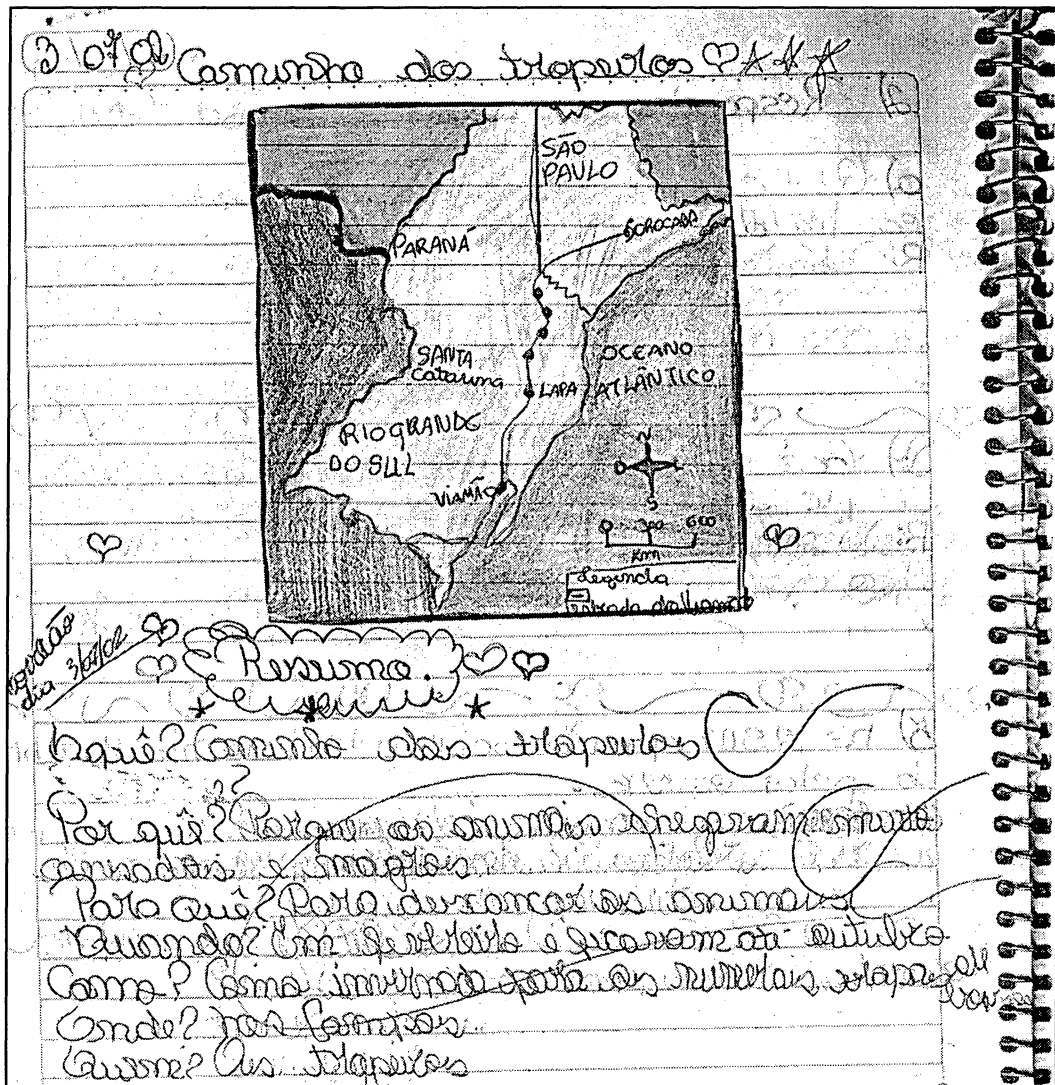 3/07/02 Caminho dos tropeiros
SÃO
PAULO
SOROCABA
PARANÁ
SANTA
Catarina
OCEANO
ATLÂNTICO
LAPA
RIO GRANDE
DO SUL
VIAMÃO
N
O L
S
0 300 600
Km
Legenda
estrada do Viamão
dia 3/07/02
Resumo.
O quê? Caminho dos tropeiros
Por quê? Porque os animais chegavam muito
cansados e magros
Para quê? Para descansar os animais
Quando? Em fevereiro e ficavam até outubro
Como? Como invernada para os
Onde? nos Campos
Quem? Os tropeiros